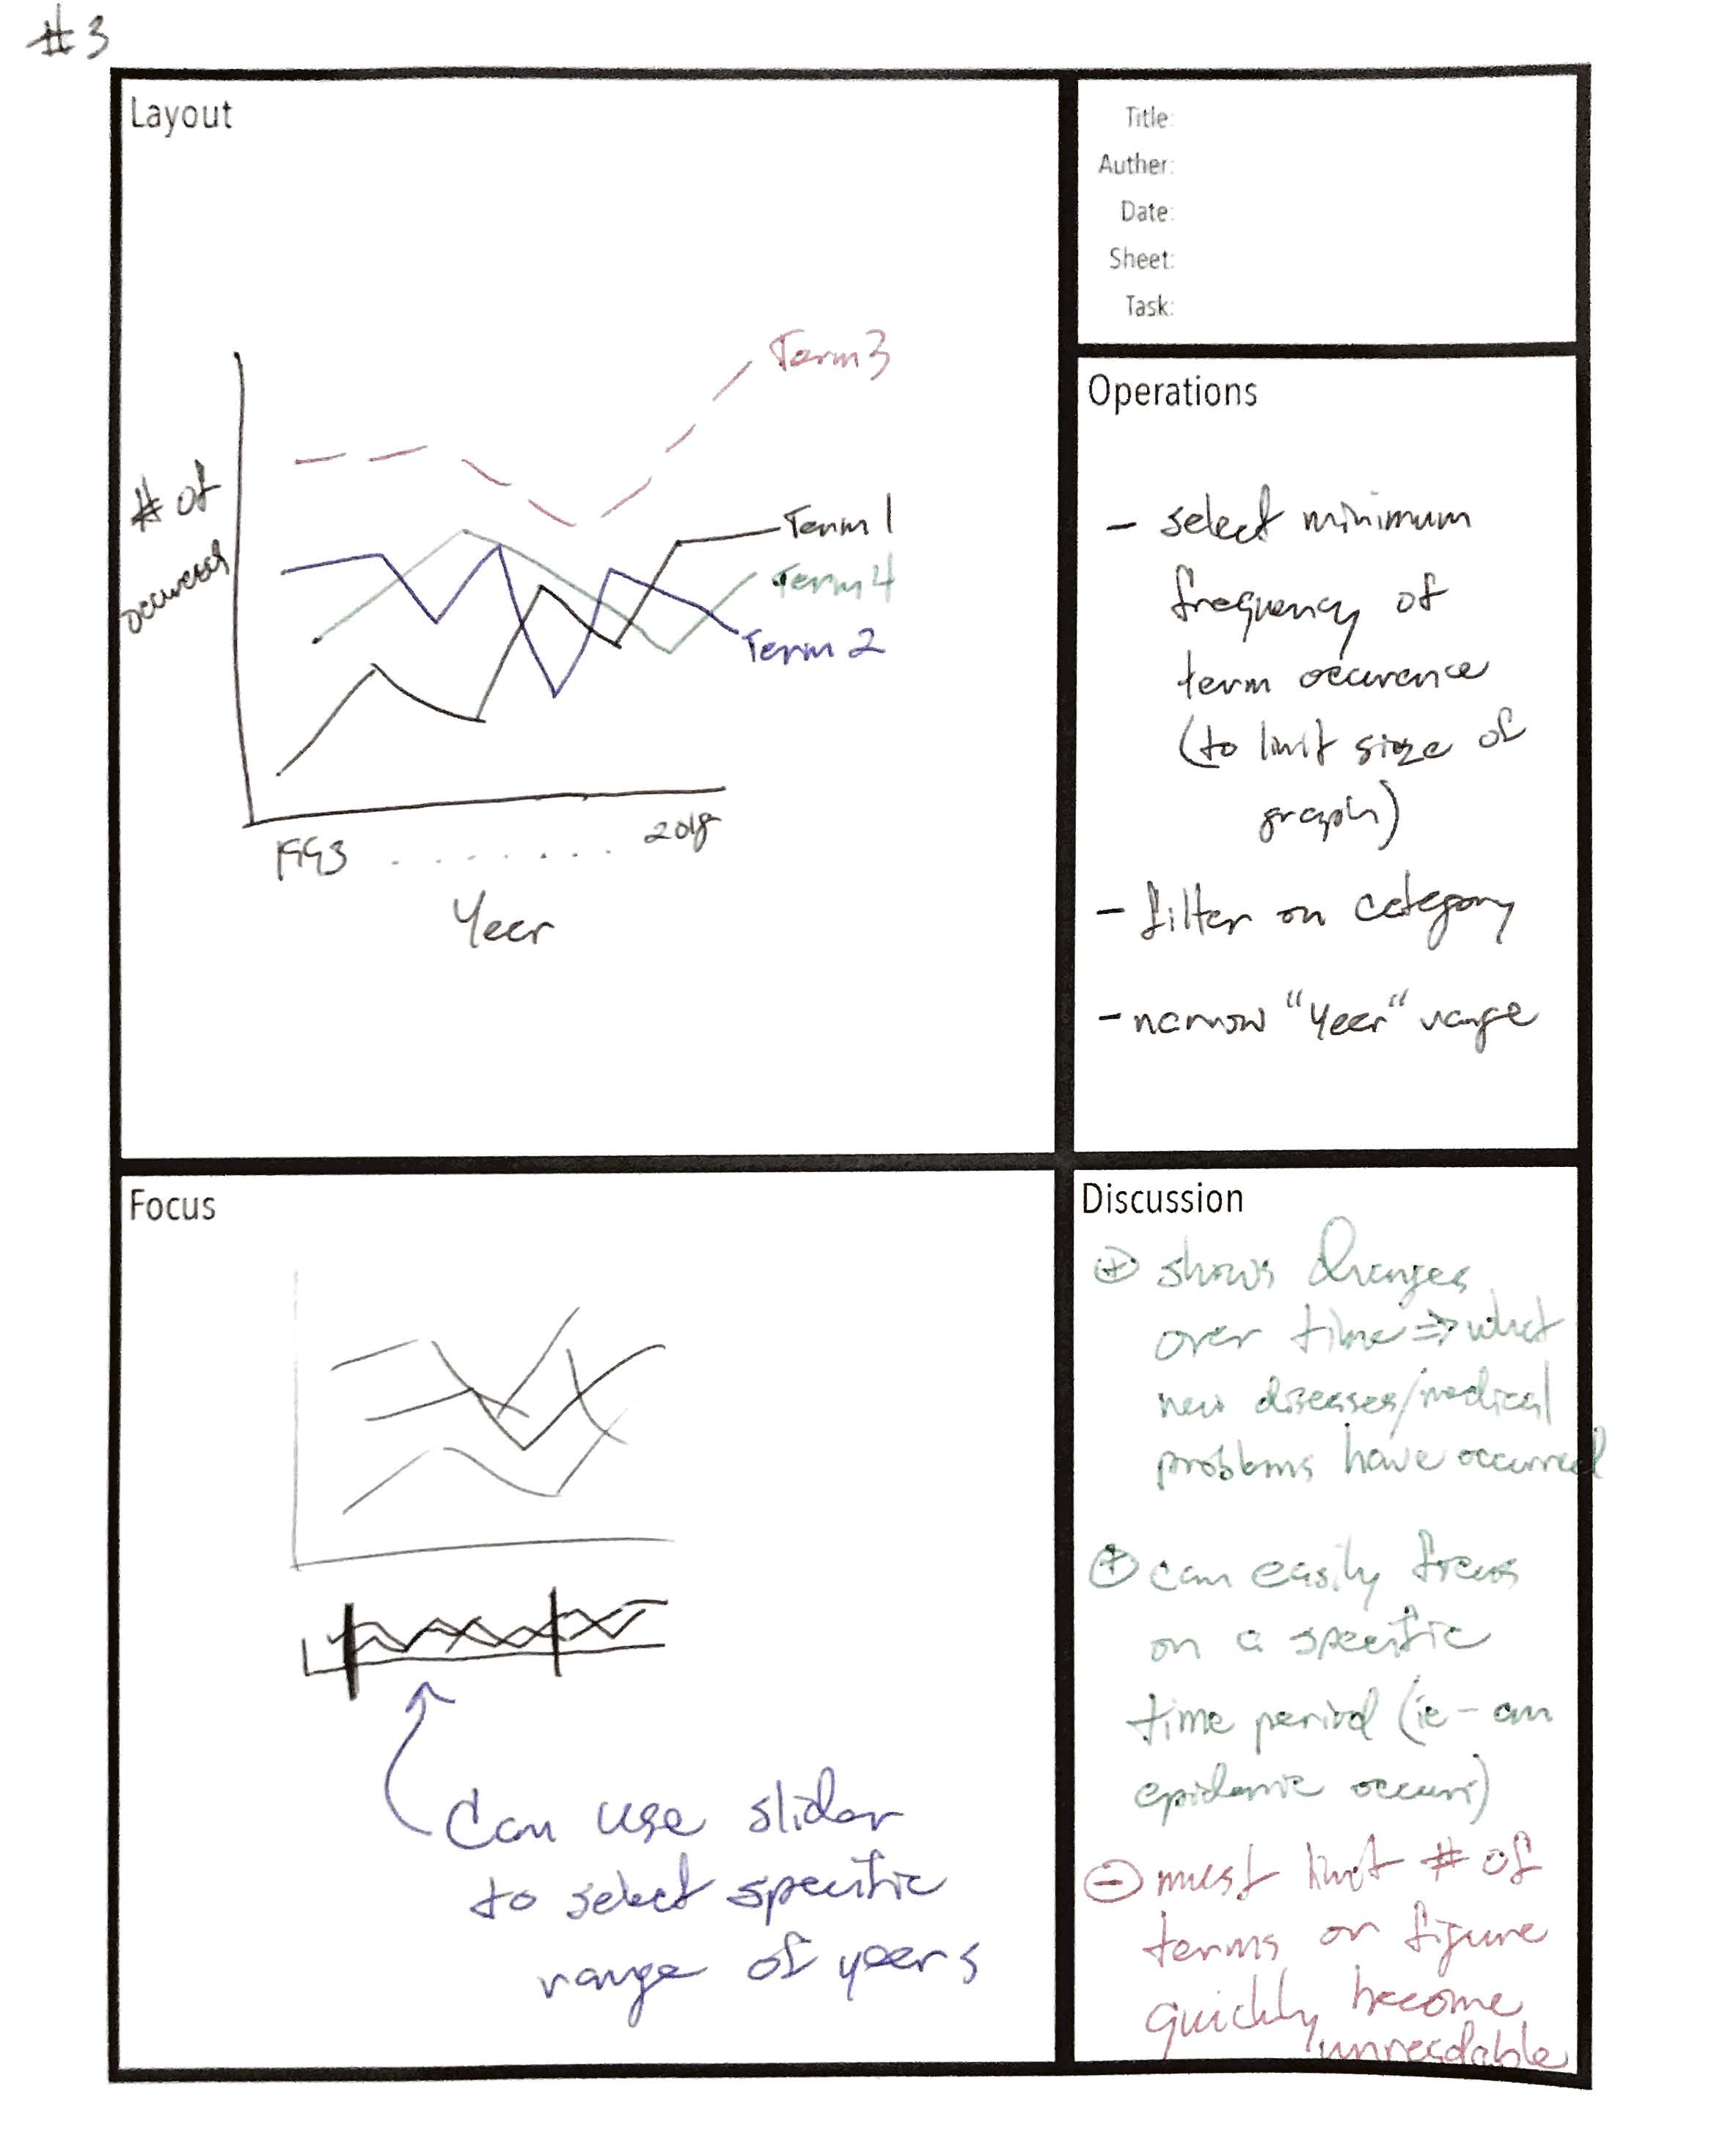 #3
Layout
Term 3
# of
Term 1
Term 4
Term 2
1993 . . . . . . . 2018
Year
Title:
Auther:
Date:
Sheet:
Task:
Operations
- select minimum
frequency of
term occurence
(to limit size of
graph)
- filter on category
- narrow "Year" range
Focus
Can use slider
to select specific
range of years
Discussion
⊕ shows changes
over time => what
new diseases/medical
problems have occurred
⊕ can easily focus
on a specific
time period (ie - an
epidemic occurs)
⊖ must limit # of
terms or figure
quickly become
unreadable